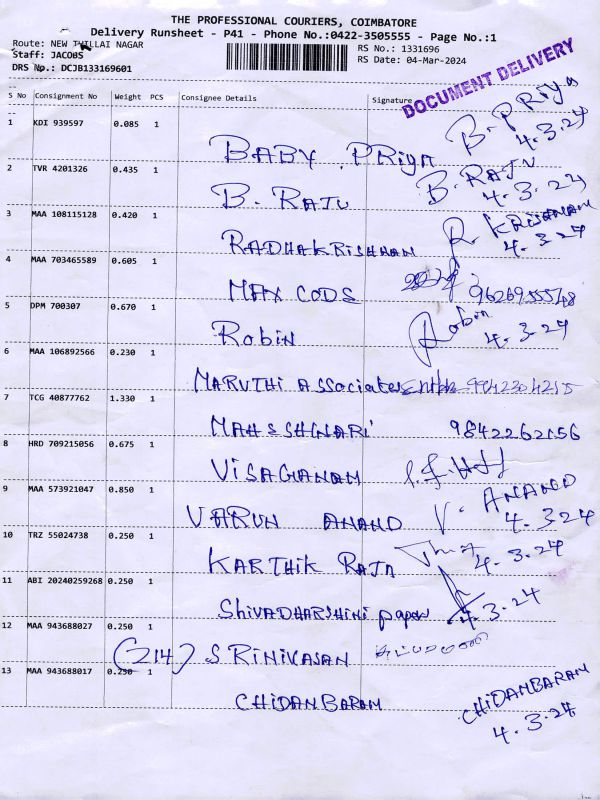 THE PROFESSIONAL COURIERS, COIMBATORE
Delivery Runsheet - P41 - Phone No.:0422-3505555 - Page No.:1
Route: NEW THILLAI NAGAR
Staff: JACOBS
DRS No.: DCJB133169601
RS No.: 1331696
RS Date: 04-Mar-2024
DOCUMENT DELIVERY
S No Consignment No Weight PCS Consignee Details Signature
1 KDI 939597 0.085 1 BABY PRiya B. PRiya 4.3.24
2 TVR 4201326 0.435 1 B. RAJU B. RAJU 4.3.24
3 MAA 108115128 0.420 1 RADHAKRISHNAN R. KRISHNAN 4.3.24
4 MAA 703465589 0.605 1 MAX CODS
5 DPM 700307 0.670 1 Robin Robin 4.3.24
6 MAA 106892566 0.230 1 MARUTHI Associates 9842304215
7 TCG 40877762 1.330 1 9842262156
8 HRD 709215056 0.675 1 VISAGANAM
9 MAA 573921047 0.850 1 VARUN ANAND V. ANAND 4.3.24
10 TRZ 55024738 0.250 1 KARTHIK RAJA 4.3.24
11 ABI 20240259268 0.250 1 ShivADHARShini paper 4.3.24
12 MAA 943688027 0.250 1 (214) SRINIVASAN
13 MAA 943688017 0.250 1 CHIDANBARAM CHIDANBARAM 4.3.24